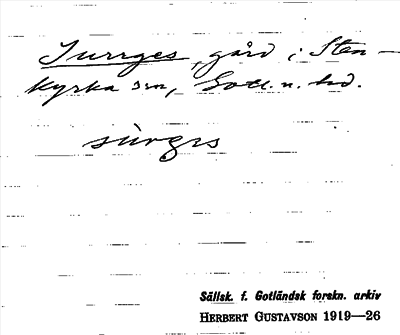 Surrges, gård i Sten-
kyrka sn, Gotl. n. hd.
sùrgɛs
Sällsk. f. Gotländsk forskn. arkiv
HERBERT GUSTAVSON 1919—26